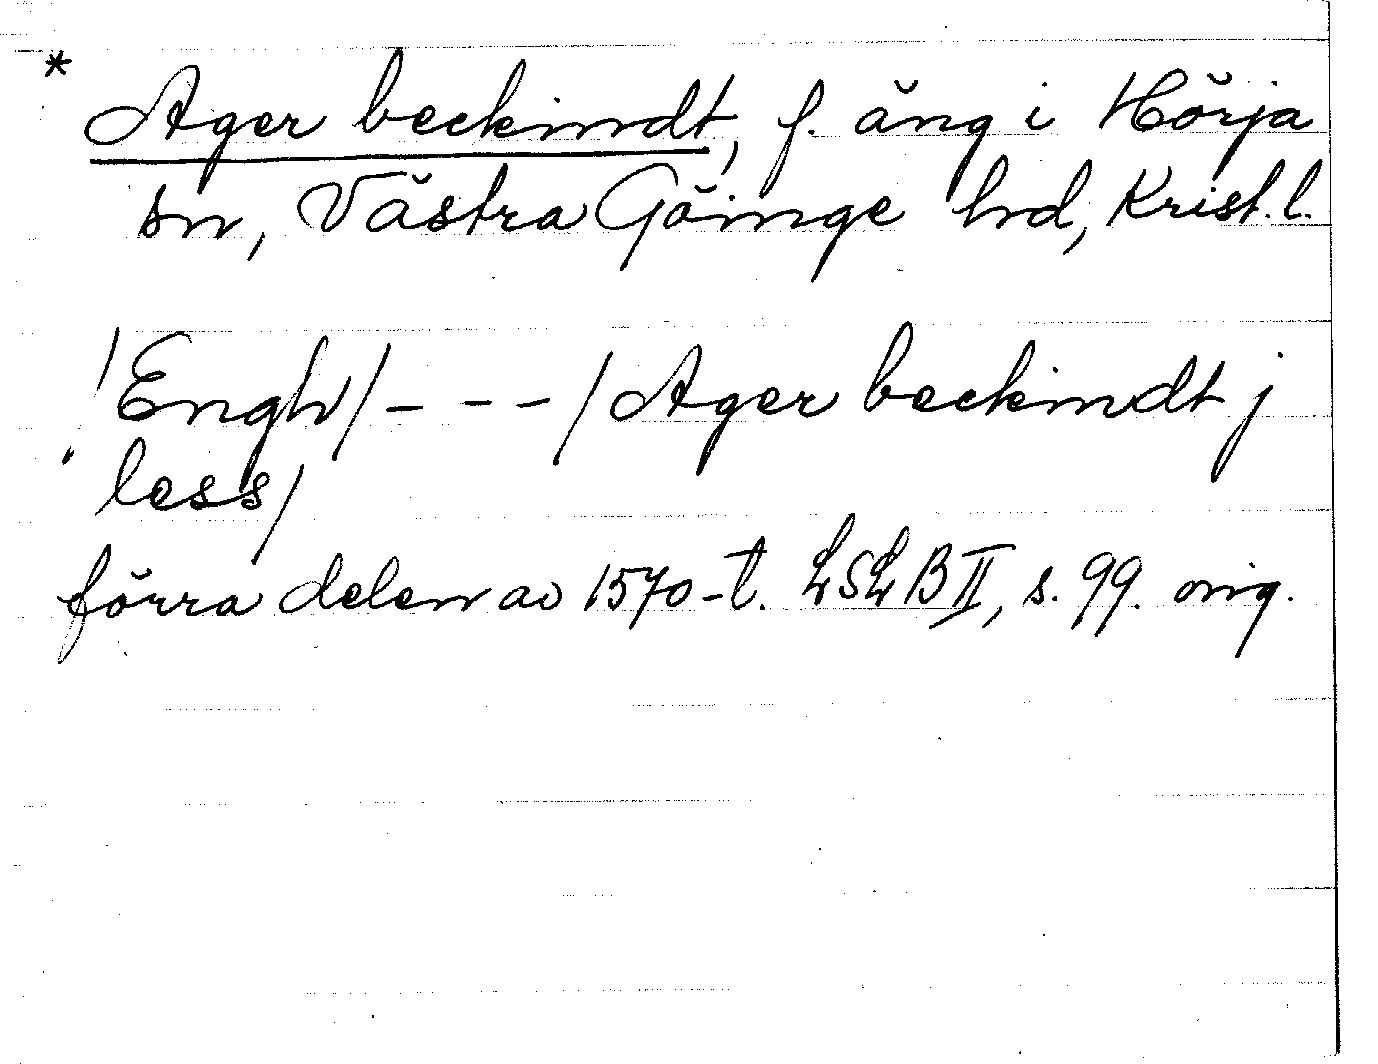 * Ager beckindt, f. äng i Hörja
sn, Västra Göinge hd, Krist. l.
/Engh/ - - - / Ager beckindt j
less/
förra delen av 1570-t. LSLB II, s. 99. orig.